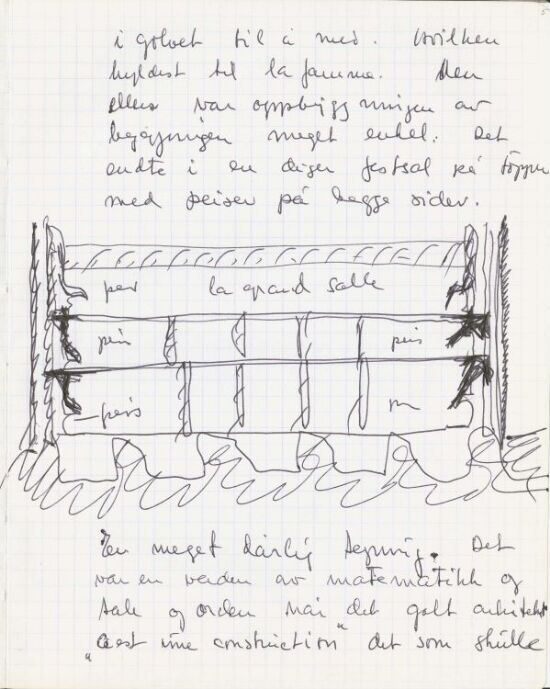 i golvet til å med. Hvilken
hyldest til la femme. Men
ellers var oppbyggningen av
meget enkel. Det
endte i en diger festsal på toppen
med peiser på begge sider.
peis la grand salle
peis peis
peis
En meget dårlig tegning. Det
var en verden av matematikk og
tale og orden når det galt arkitekt
"C'est une construction" det som skulle